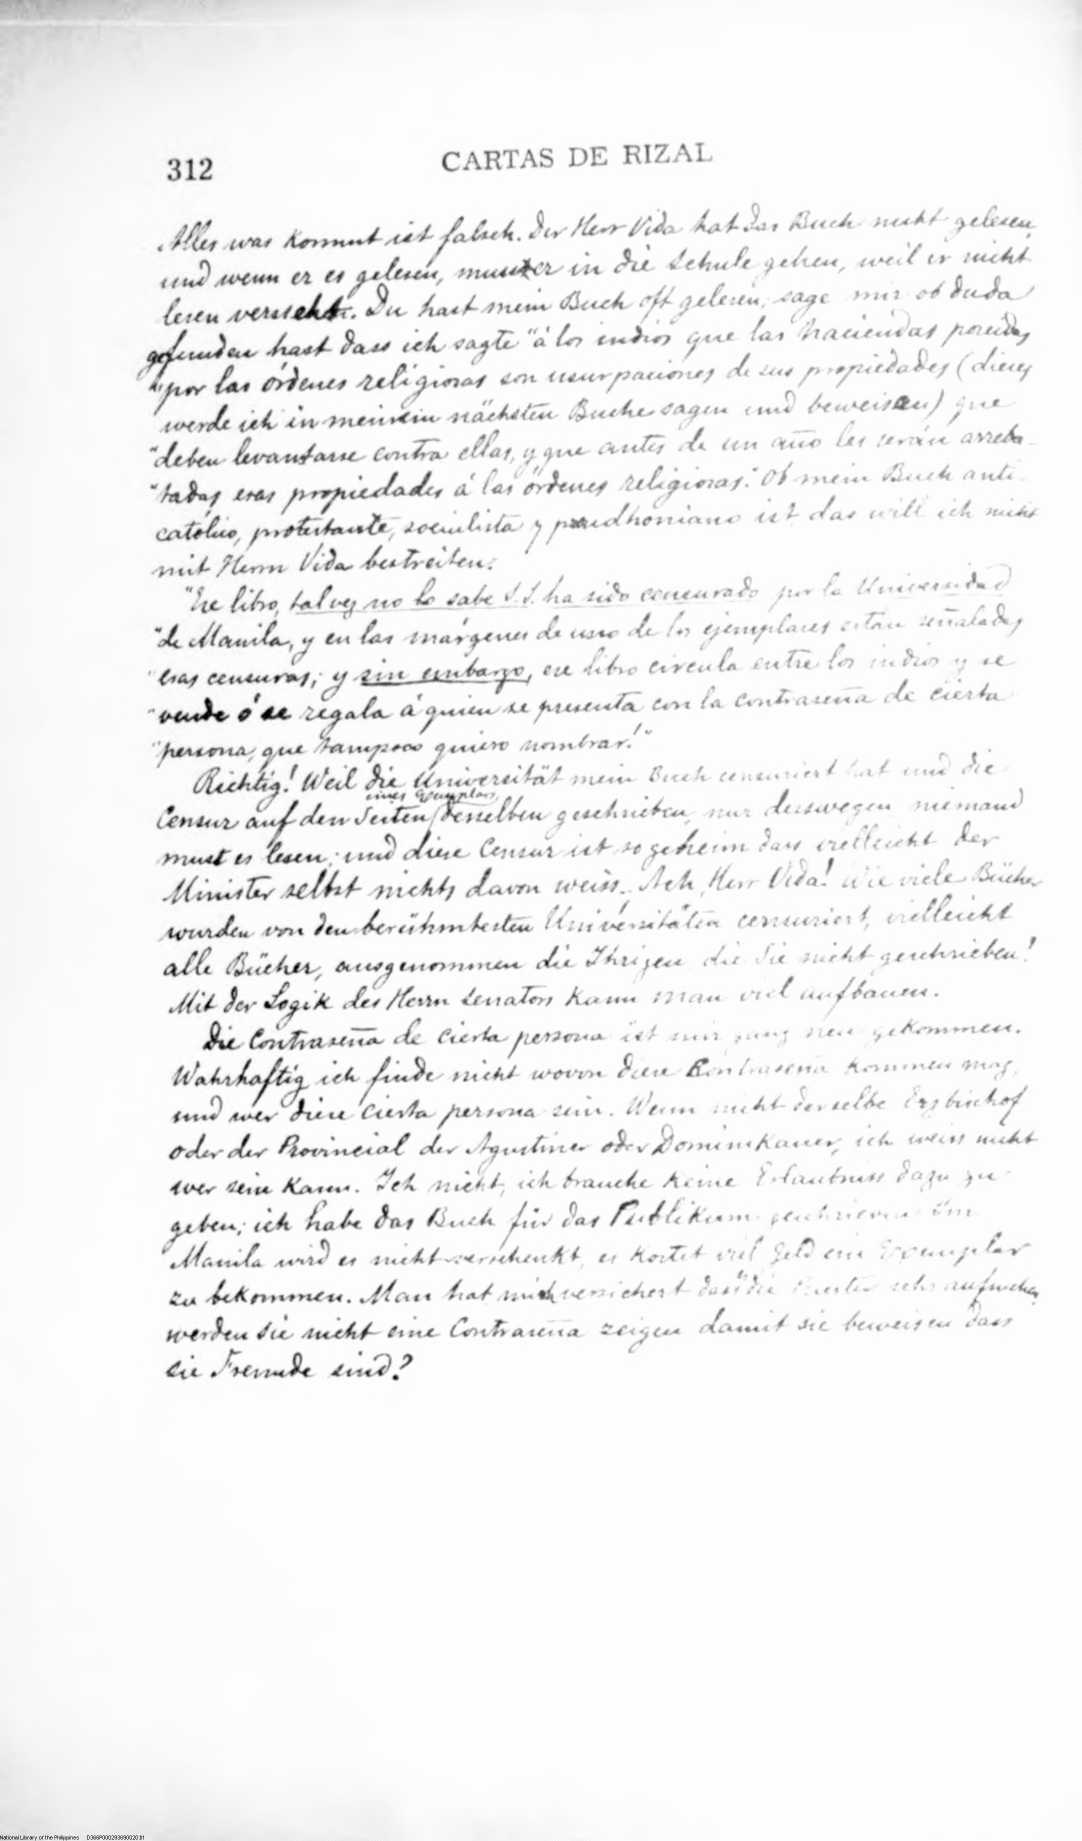 312
CARTAS DE RIZAL
Alles was kommt ist falsch. Der Herr Vida hat das Buch nicht gelesen,
und wenn er es gelesen, muss er in die Schule gehen, weil er nicht
lesen versteht. Du hast mein Buch oft gelesen; sage mir ob du da
gefunden hast dass ich sagte "á los indios que las haciendas poseidas
"por las órdenes religiosas son usurpaciones de sus propiedades (dieses
werde ich in meinem nächsten Buche sagen und beweisen) que
"deben levantarse contra ellas, y que antes de un año les serán arreba-
"tadas esas propiedades á las órdenes religiosas." Ob mein Buch anti-
católico, protestante, socialista y proudhoniano ist, das will ich nicht
mit Herrn Vida bestreiten.
"Ese libro, tal vez no lo sabe S.S. ha sido censurado por la Universidad
"de Manila, y en las márgenes de uno de los ejemplares están señaladas
"esas censuras; y sin embargo, ese libro circula entre los indios y se
"vende ó se regala á quien se presenta con la contraseña de cierta
"persona, que tampoco quiero nombrar!"
Richtig! Weil die Universität mein Buch censuriert hat und die
eines Exemplars
Censur auf den Seiten desselben geschrieben, nur desswegen niemand
must es lesen; und diese Censur ist so geheim dass vielleicht der
Minister selbst nichts davon weiss. Ach, Herr Vida! Wie viele Bücher
wurden von den berühmtesten Universitäten censuriert, vielleicht
alle Bücher, ausgenommen die Ihrigen die Sie nicht geschrieben!
Mit der Logik des Herrn Senators kann man viel aufbauen.
Die Contraseña de cierta persona ist mir ganz neu gekommen.
Wahrhaftig ich finde nicht wovon diese Contraseña kommen mag,
und wer diese cierta persona sein. Wenn nicht derselbe Erzbischof
oder der Provincial der Agustiner oder Dominikaner, ich weiss nicht
wer sein kann. Ich nicht, ich brauche keine Erlaubniss dazu zu
geben; ich habe das Buch für das Publikum geschrieben. In
Manila wird es nicht verschenkt, es kostet viel Geld ein Exemplar
zu bekommen. Man hat mich versichert dass die Priester sehr aufwachen,
werden sie nicht eine Contraseña zeigen damit sie beweisen dass
sie Freunde sind?
National Library of the Philippines